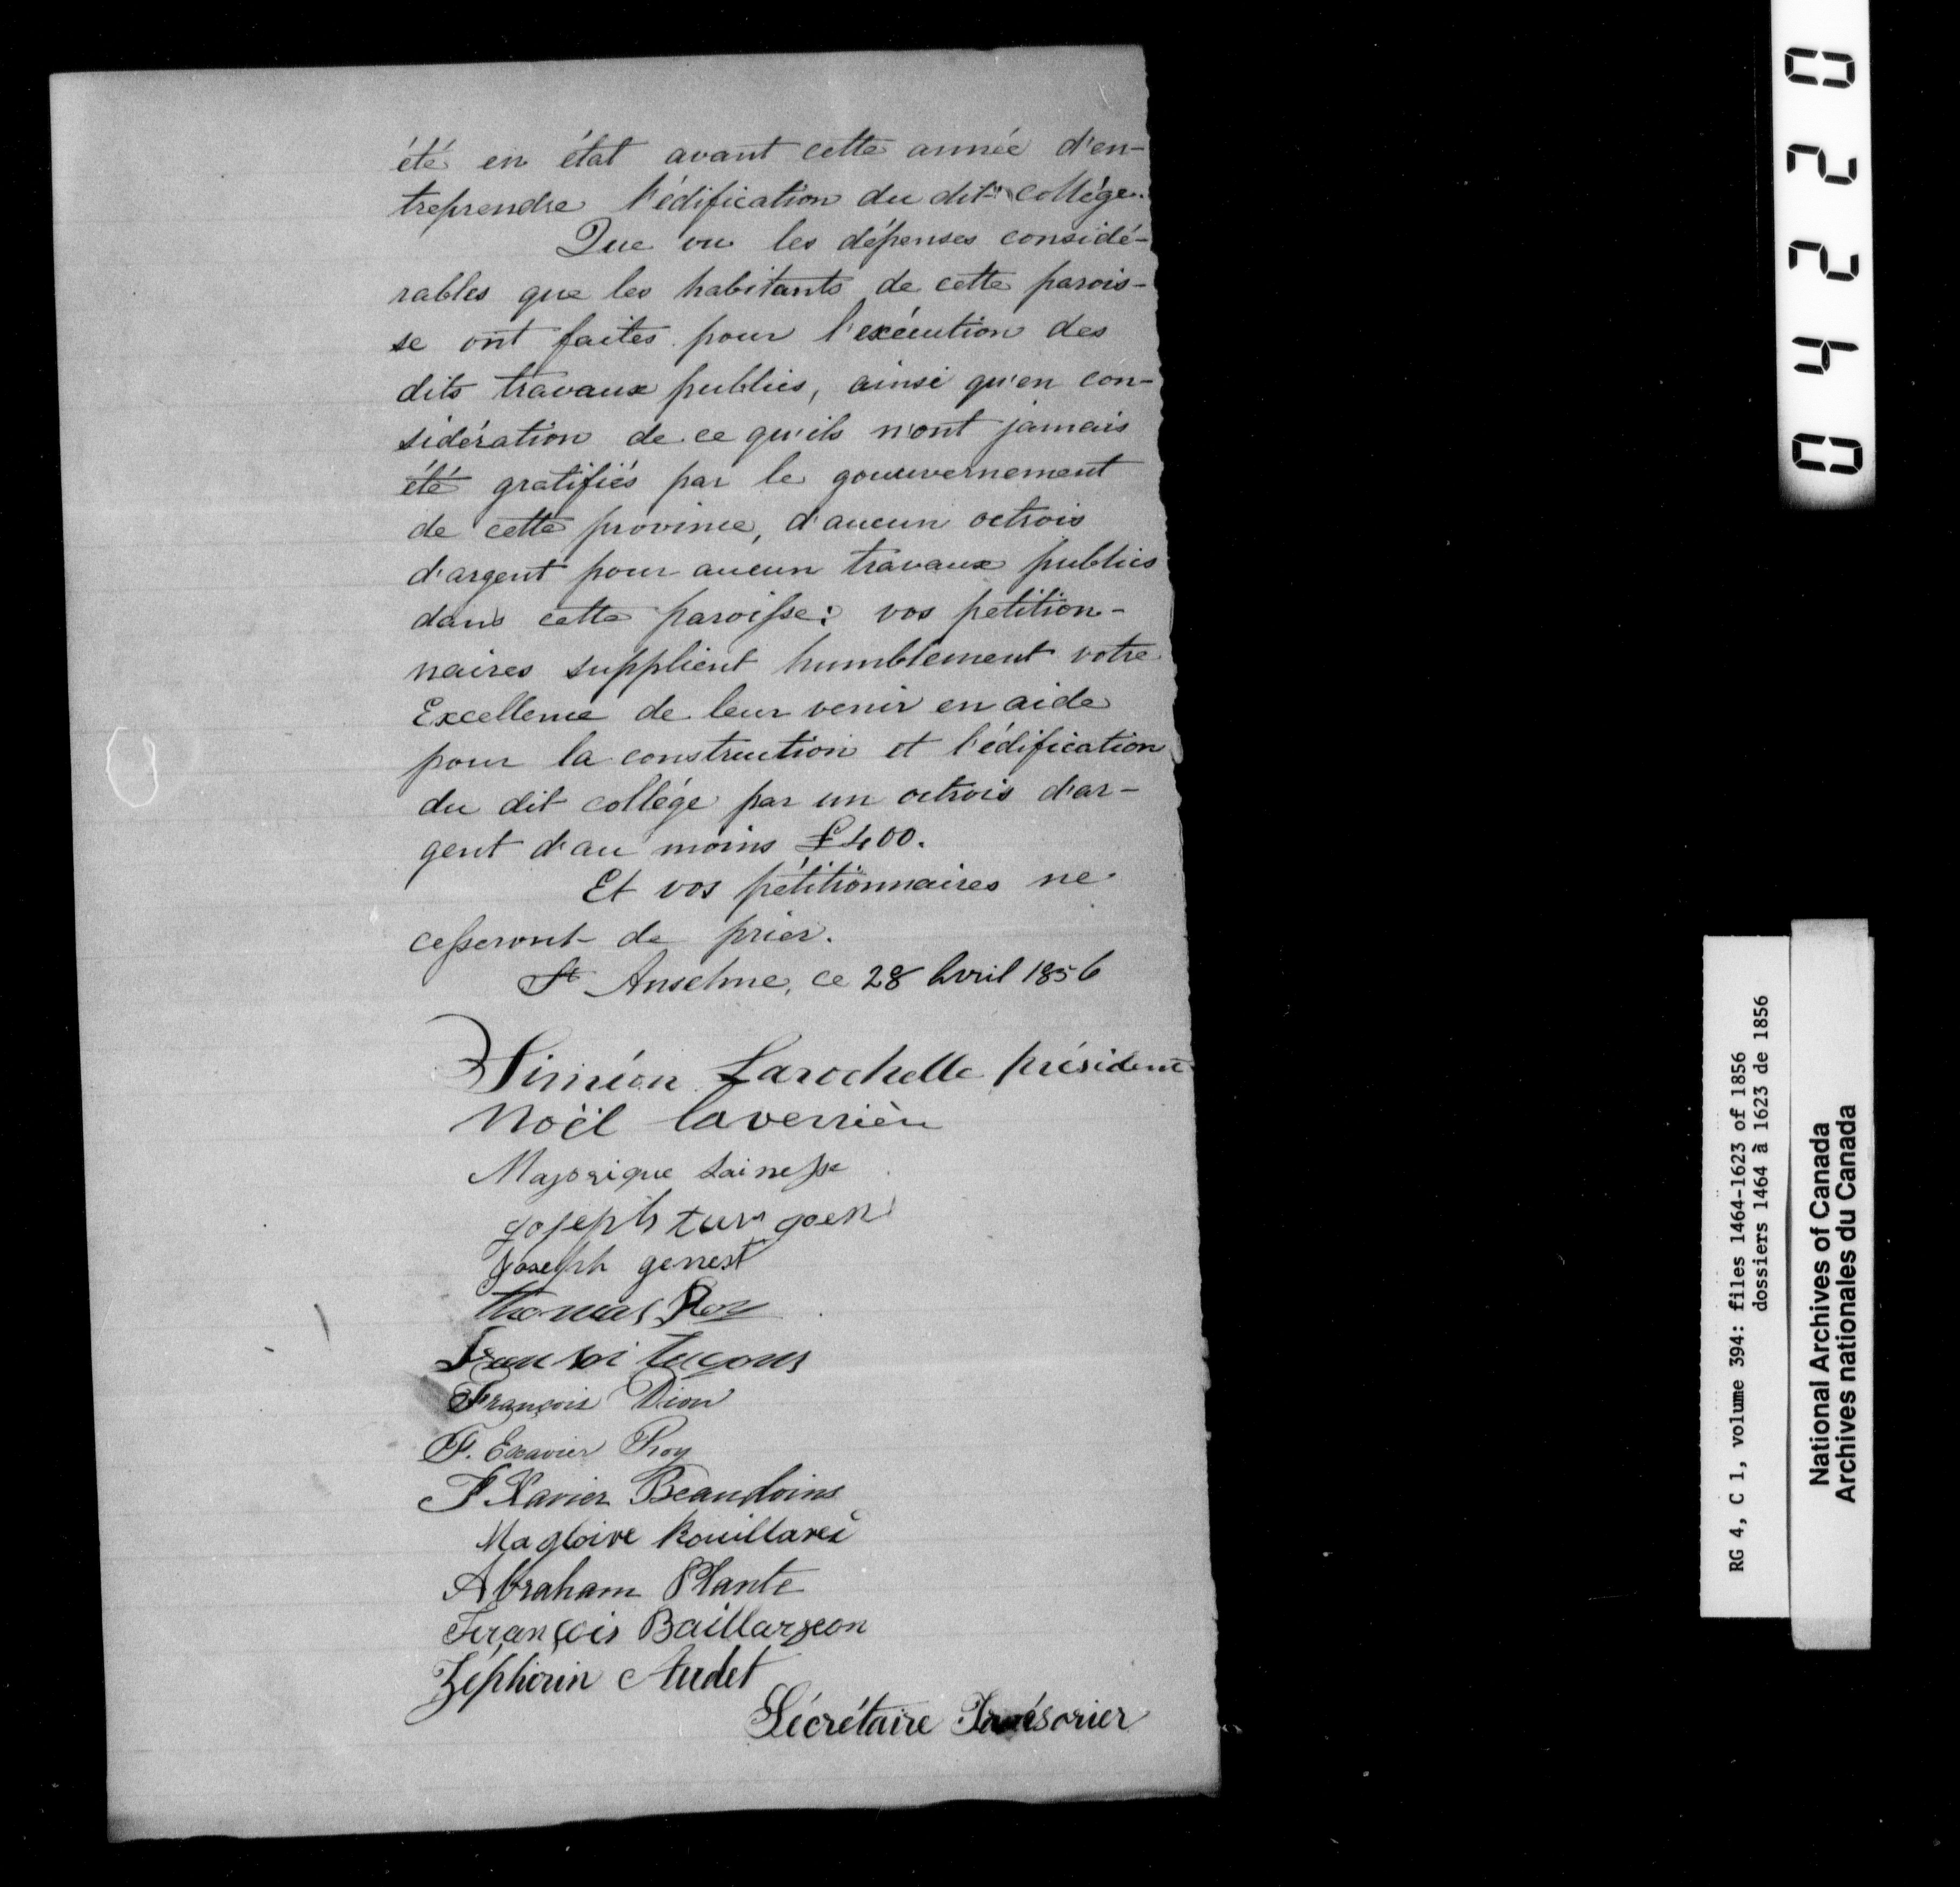 été en état avant cette année d'en-
treprendre l'édification du dit collége.
Que vu les dépenses considé-
rables que les habitants de cette parois-
se ont faites pour l'exécution des
dits travaux publics, ainsi qu'en con-
sidération de ce qu'ils n'ont jamais
été gratifiés par le gouuvernement
de cette province, d'aucun octrois
d'argent pour aucun travaux publics
dans cette paroisse: vos petition-
naires supplient humblement votre
Excellence de leur venir en aide
pour la construction et l'édification
du dit collége par un octrois d'ar-
gent d'au moins £400.
Et vos pétitionnaires ne
cesseront de prier.
St Anselme, ce 28 Avril 1856
Siméon Larochelle président
Noël laverrière
Majorique Lainesse
joseph turgoen
Joseph genest
thomas Roy
François Dion
F. Exavier Roy
F Xavier Beaudoins
Magloire Rouillard
Abraham Plante
François Baillargeon
Zéphirin Audet
Sécrétaire Trésorier
04220
RG 4, C 1, volume 394: files 1464-1623 of 1856
dossiers 1464 à 1623 de 1856
National Archives of Canada
Archives nationales du Canada